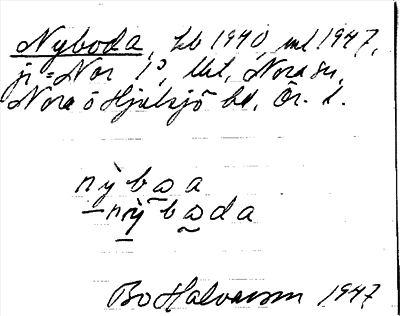 Nyboda, Lb 1940, ml 1947,
jr = Nor 1³, Ukt, Nora sn,
Nora o Hjulsjö bd, Ör. l.
nỳb a a
– nỳ b a d a
Bo Halvarson 1947